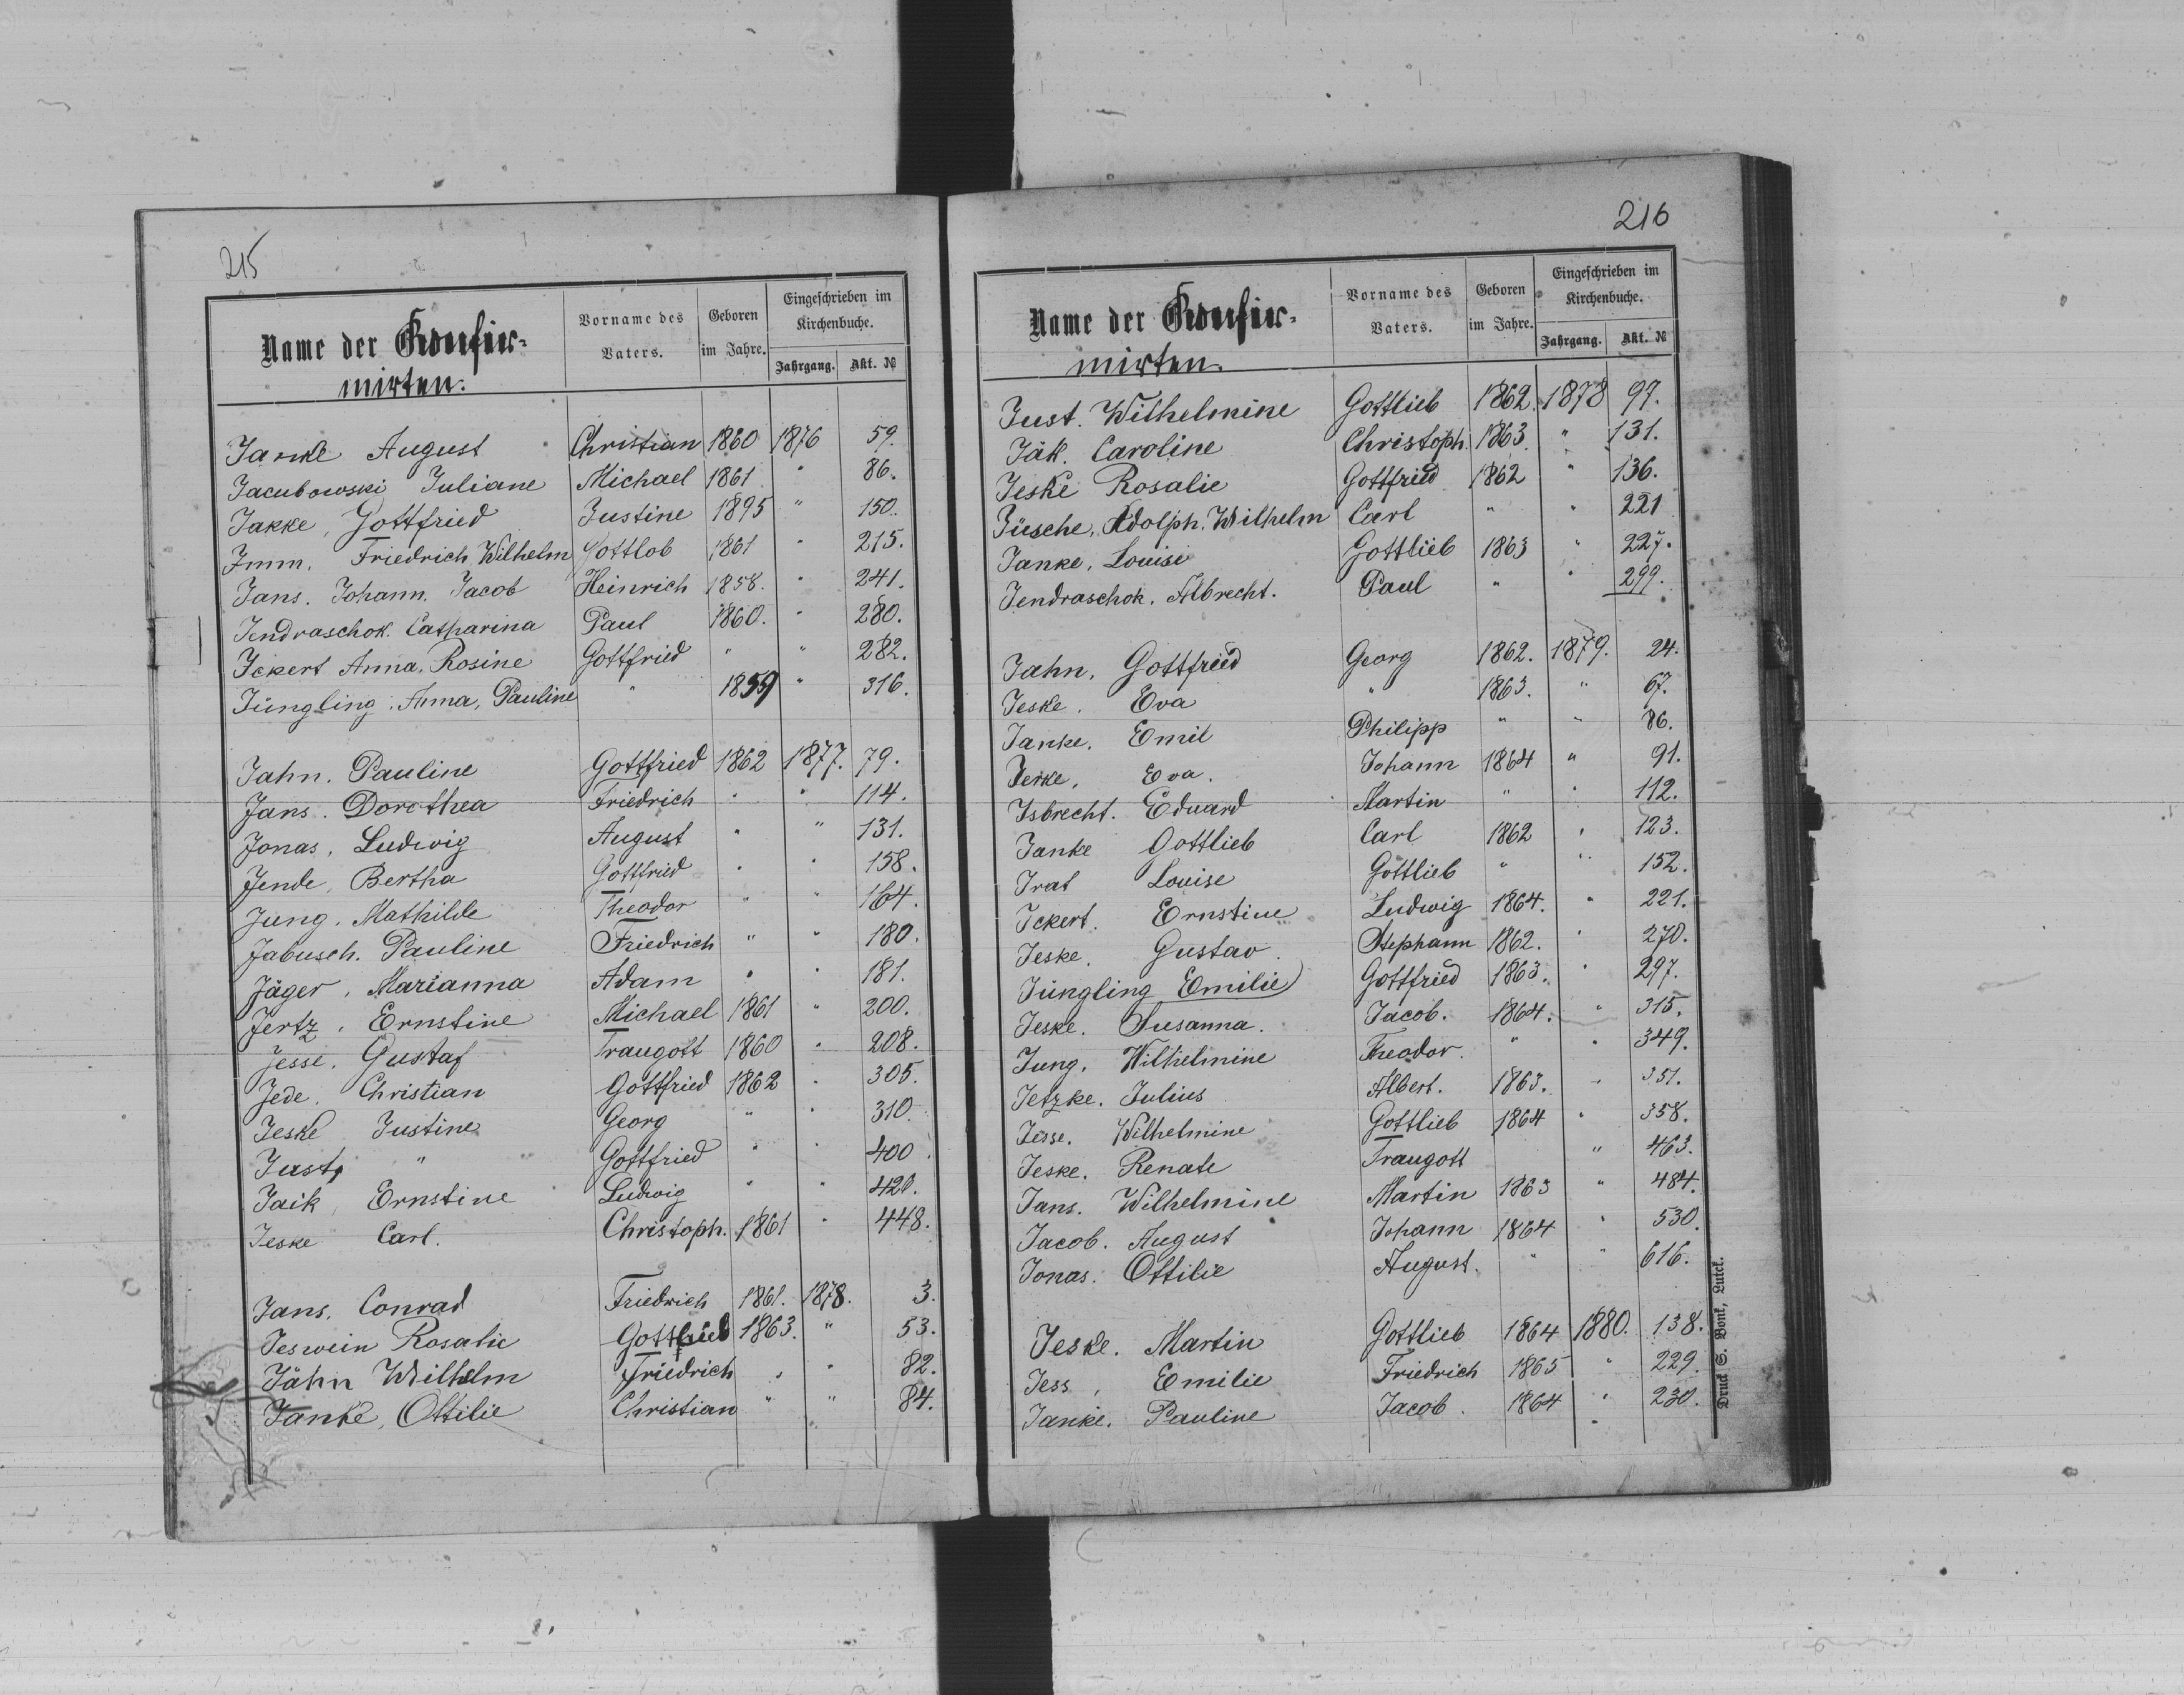 215
Name der Konfir-
mirten.
Vorname des
Vaters.
Geboren
im Jahre.
Eingeschrieben im
Kirchenbuche.
Jahrgang. Akt. №
Janke August Christian 1860 1876 59.
Jacubowski Juliane Michael 1861 " 86.
Jakke, Gottfried Justine 1895 " 150.
Imm. Friedrich Wilhelm Gottlob 1861 " 215.
Jans. Johann. Jacob Heinrich 1858. " 241.
Jendraschok. Catharina Paul 1860. " 280.
Ickert Anna, Rosine Gottfried " " 282.
Jüngling, Anna, Pauline " 1859 " 316.
Jahn. Pauline Gottfried 1862 1877. 79.
Jans. Dorothea Friedrich " " 114.
Jonas, Ludwig August " " 131.
Jende, Bertha Gottfried " " 158.
Jung, Mathilde Theodor " " 164.
Jabusch. Pauline Friedrich " " 180.
Jäger, Marianna Adam " " 181.
Jertz, Ernstine Michael 1861 " 200.
Jesse, Gustaf Traugott 1860 " 208.
Jede, Christian Gottfried 1862 " 305.
Jeske Justine Georg " " 310.
Just, " Gottfried " " 400.
Jaik, Ernstine Ludwig " " 420.
Jeske Carl. Christoph. 1861 " 448.
Jans, Conrad Friedrich 1861. 1878. 3.
Jeswein Rosalie Gottlieb 1863. " 53.
Jähn Wilhelm Friedrich " " 82.
Janke, Ottilie Christian " " 84.
216
Name der Konfir-
mirten.
Vorname des
Vaters.
Geboren
im Jahre.
Eingeschrieben im
Kirchenbuche.
Jahrgang. Akt. №
Just. Wilhelmine Gottlieb 1862. 1878 97.
Jäk. Caroline Christoph. 1863. " 131.
Jeske Rosalie Gottfried 1862 " 136.
Jüsche, Adolph. Wilhelm Carl " " 221
Janke, Louise Gottlieb 1863 " 227.
Jendraschok. Albrecht. Paul " " 299.
Jahn, Gottfried Georg 1862. 1879. 24.
Jeske. Eva " 1863. " 67.
Janke. Emil Philipp " " 86.
Eva. Johann 1864 " 91.
Isbrecht. Eduard Martin " " 112.
Janke Gottlieb Carl 1862 " 123.
Irat Louise Gottlieb " " 152.
Ickert. Ernstine Ludwig 1864. " 221.
Jeske. Gustav. Stephann 1862. " 270.
Jüngling Emilie Gottfried 1863. " 297.
Jeske. Susanna. Jacob. 1864. " 315.
Jung. Wilhelmine Theodor. " " 349.
Jetzke. Julius Albert. 1863. " 351.
Jesse. Wilhelmine Gottlieb 1864 " 358.
Jeske. Renate Traugott " 463.
Jans. Wilhelmine Martin 1863 " 484.
Jacob. August Johann 1864 " 530.
Jonas. Ottilie August. " " 616.
Jeske. Martin Gottlieb 1864 1880. 138.
Jess, Emilie Friedrich 1865 " 229.
Janke. Pauline Jacob. 1864 " 230.
Druck S. Bonk, Lutck.